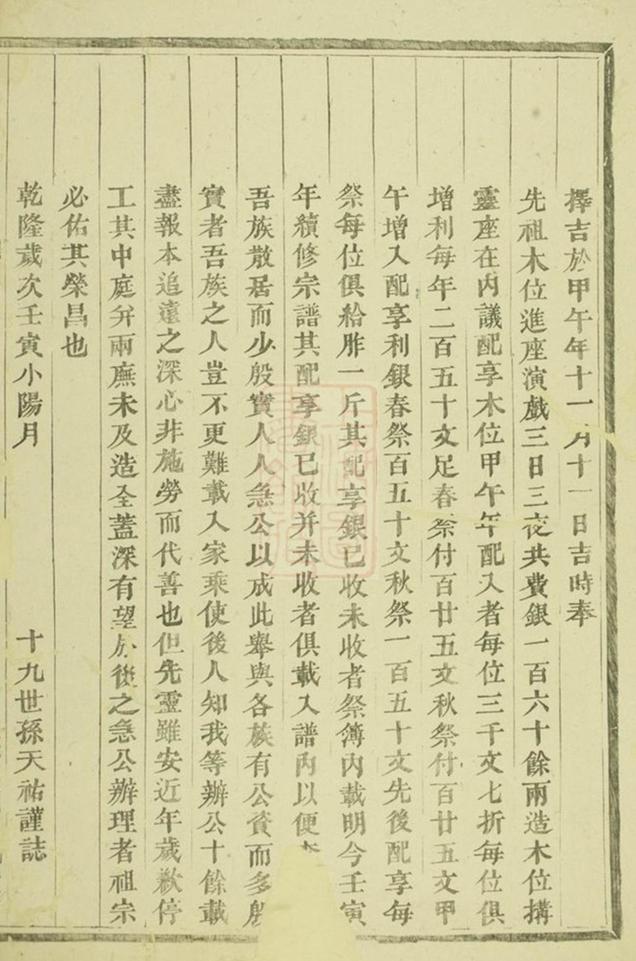 擇吉於甲午年十一月十一日吉時奉
先祖木位進座演戲三日三夜共費銀一百六十餘兩造木位搆
靈座在內議配享木位甲午年配入者每位三千文七折每位俱
增利每年二百五十文足春祭付百廿五文秋祭付百廿五文甲
午增入配享利銀春祭百五十文秋祭一百五十文先後配享每
祭每位俱給胙一斤其配享銀已收未收者祭簿內載明今壬寅
年續修宗譜其配享銀已收并未收者俱載入譜內以便
吾族散居而少殷實人人急公以成此舉與各族有公貲而多殷
實者吾族之人豈不更難載入家乘使後人知我等辦公十餘載
盡報本追遠之深心非施勞而伐善也但先靈雖安近年歲歉停
工其中庭弁兩廡未及造全蓋深有望於後之急公辦理者祖宗
必佑其榮昌也
乾隆歲次壬寅小陽月 十九世孫天祐謹誌